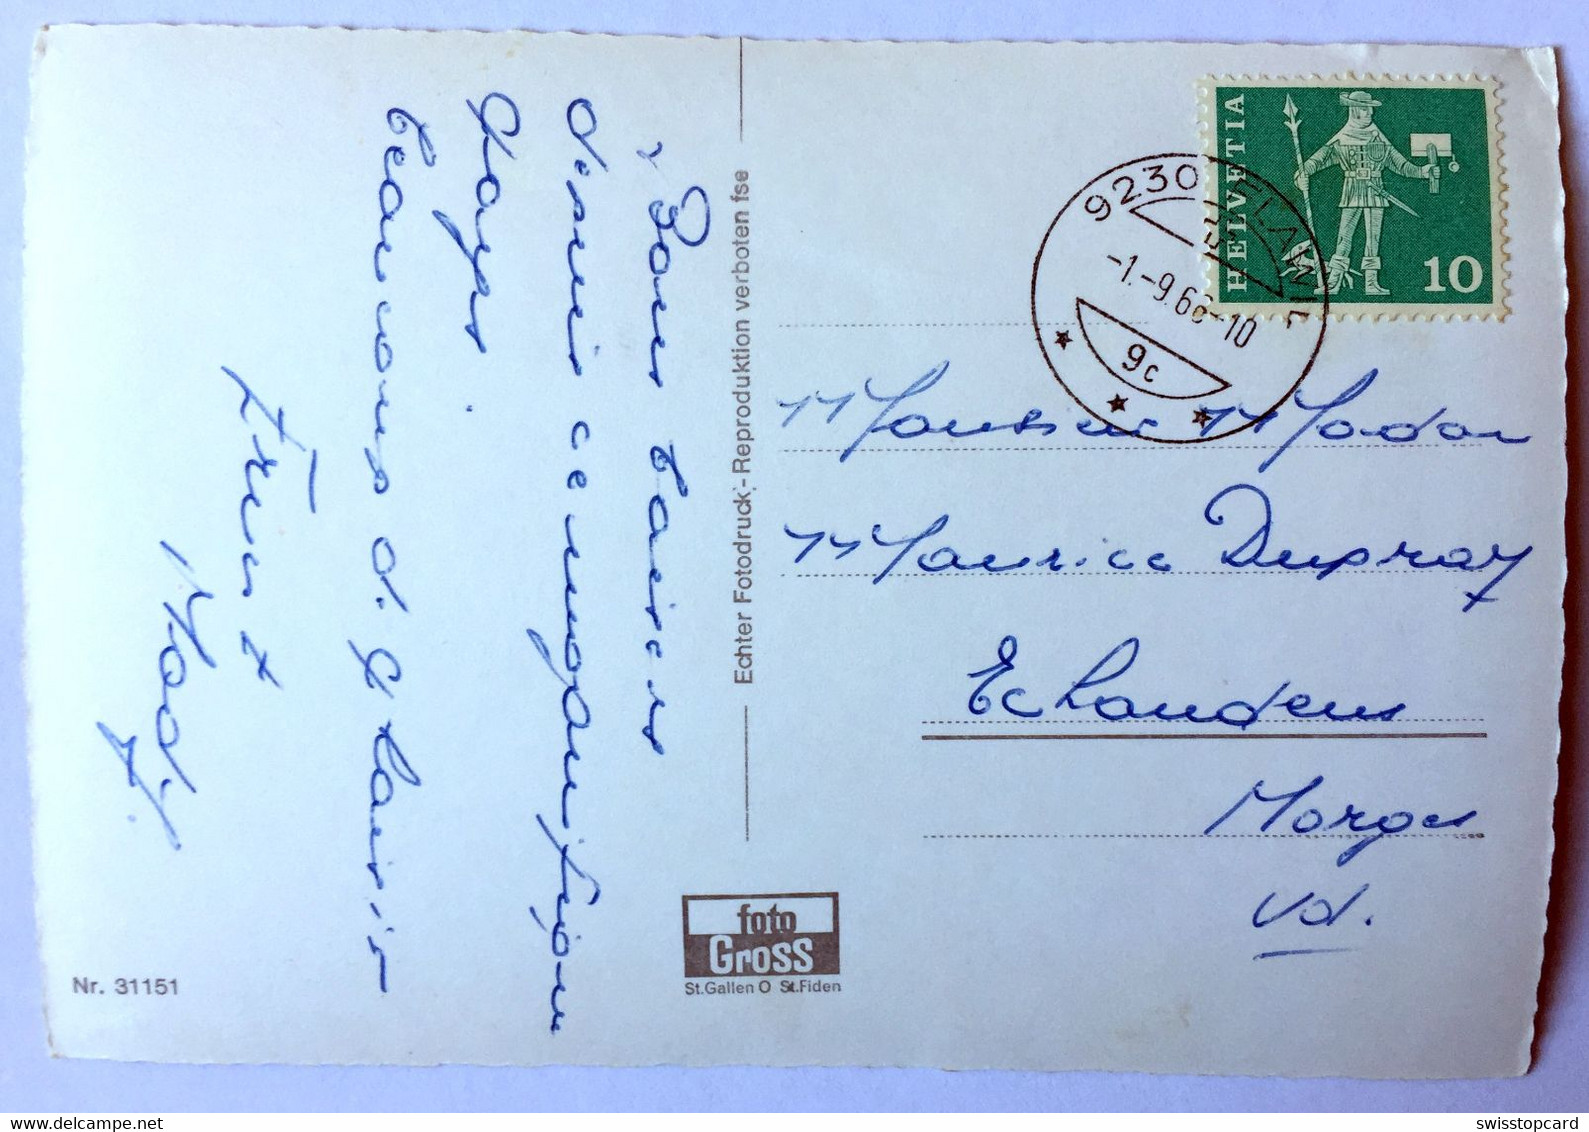 Bons baisers
depuis ce magnifique
Pays.
Beaucoup de plaisir
Ernst
Mady.
Echter Fotodruck - Reproduktion verboten fse
HELVETIA
10
9230 FLAWIL
-1.-9.68-10
9c
Monsieur Madam
Maurice Dupray
Echandens
Morges
Vd.
foto
Gross
St.Gallen O St.Fiden
Nr. 31151
swisstopcard
delcampe.net